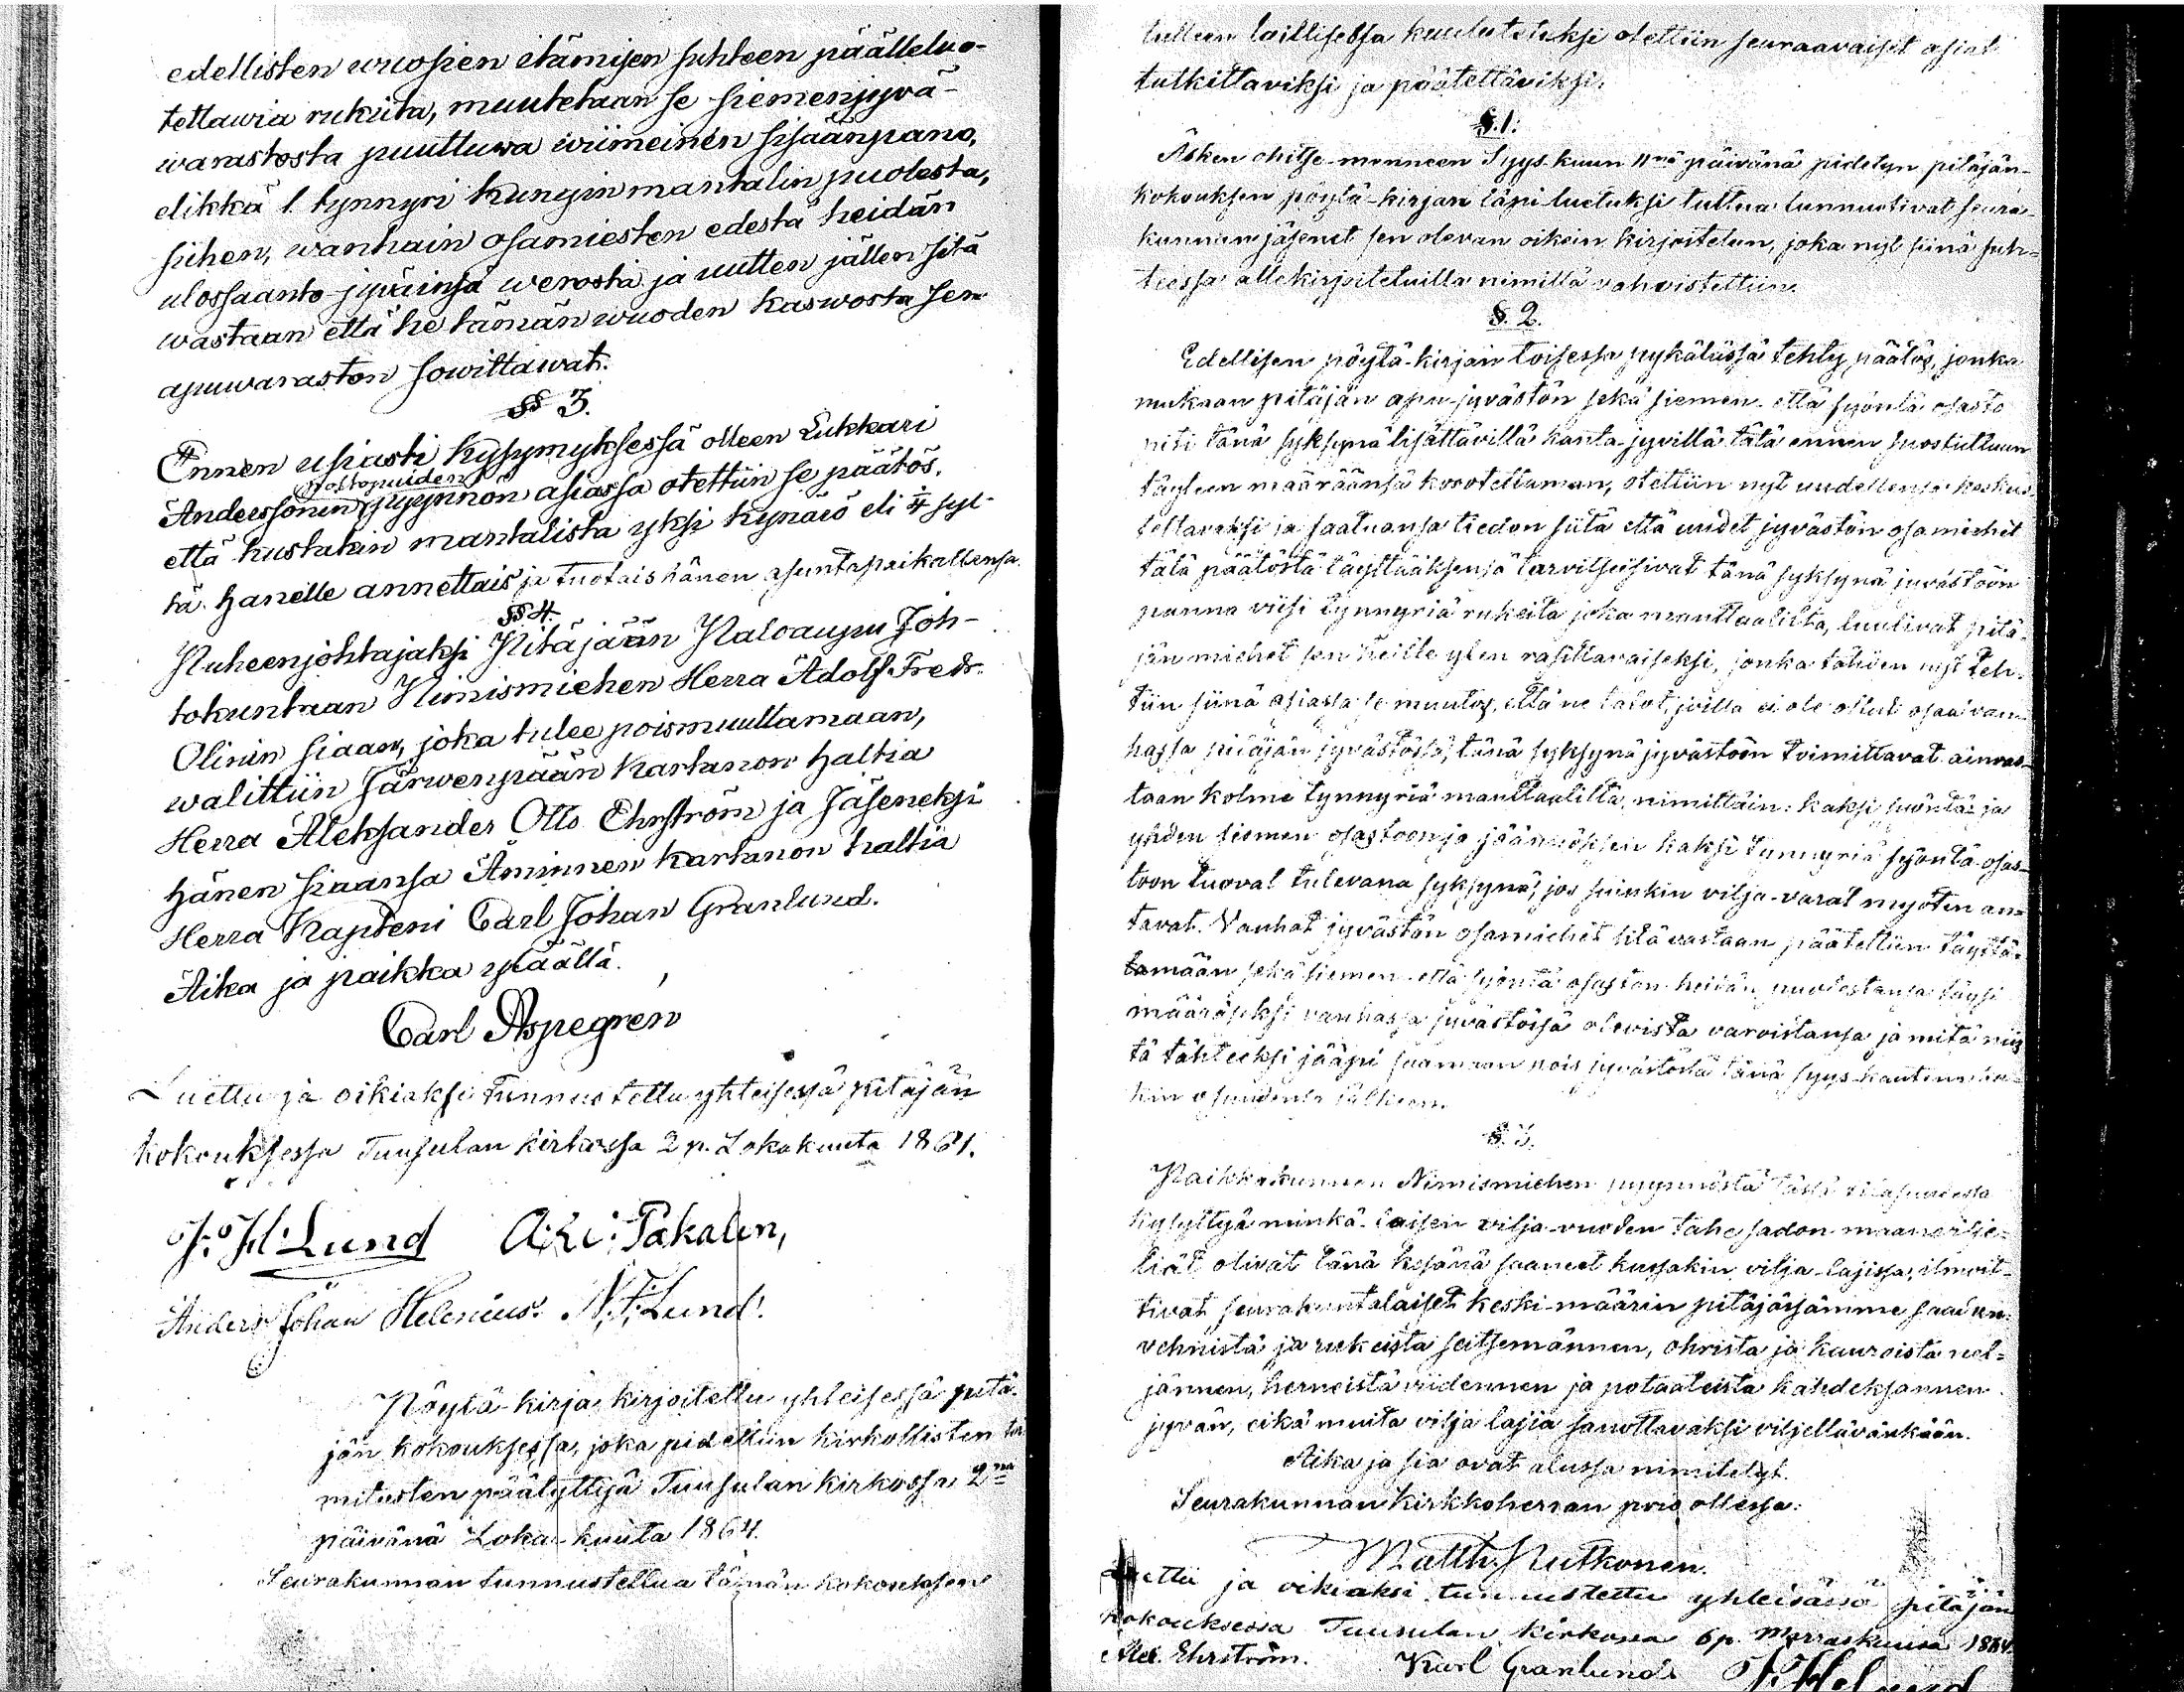 edellisten wuosien itämisen suhteen päälleluo-
tettawia rukiita, muutetaan se siemenjywä-
warastosta puuttuwa wiimeinen sisäänpano,
elikkä 1 tynnyri kungin mantalin puolesta,
siihen, wanhain osamiesten edestä heidän
ulossaanto-jywäinsä werosta ja uutten jällen sitä
wastaan että he tämän wuoden kaswosta sen
apuwaraston sowittawat.
§§ 3.
Ennen usiasti kysymyksessä olleen Lukkari
Anderssonin pyynnön asiassa otettiin se päätös,
että kustakin mantalista yksi kynäiö eli ¼ syl-
tä hänelle annettais ja tuotais hänen asuntapaikallensa.
§§ 4.
Puheenjohtajaksi Pitäjään Paloawun Joh-
tokuntaan Nimismiehen Herra Adolf Fredr.
Olinin siaan, joka tulee poismuuttamaan,
walittiin Järwenpään kartanon haltia
Herra Aleksander Otto Ehrström ja Jäseneksi
hänen siaansa Åminnen kartanon haltia
Herra Kapteni Carl Johan Granlund.
Aika ja paikka ylläällä.
Carl Aspegrén
Luettu ja oikiaksi tunnustettu yhteisessä pitäjän
kokouksessa Tuusulan kirkossa 2 p. Lokakuuta 1864.
J. H. Lund A: Pakalen,
Anders Johan Helenius. N. F. Lund.
Pöytä-kirja, kirjoitettu yhteisessä pitä-
jän kokouksessa, joka pidettiin kirkollisten toi
mitusten päätyttyä Tuusulan kirkossa 2na
päivänä Loka-kuuta 1864.
Seurakunnan tunnustettua tämän kokouksen
tulleen laillisessa kuulutetuksi otettiin seuraavaiset asiat
tutkittaviksi ja päätettäviksi.
§. 1.
Äsken ohitse-menneen Syys-kuun 11nä päivänä pidetyn pitäjän-
kokouksen pöytä-kirjan läpi-luetuksi tultua tunnustivat seura-
kunnan jäsenet sen olevan oikein kirjoitetun, joka nyt siinä suh-
teessa allekirjoitetuilla nimillä vahvistettiin.
§. 2.
Edellisen pöytä-kirjan toisessa pykälässä tehty päätös, jonka
mukaan pitäjän apu-jyvästön sekä siemen- että syöntä-osasto
piti tänä syksynä lisättävillä kanta-jyvillä tätä ennen suostuttuun
täyteen määräänsä korotettaman, otettiin nyt uudellensa keskus-
teltavaksi ja saatuansa tiedon siitä että uudet jyvästön osamiehet
tätä päätöstä täyttääksensä tarvitseisivat tänä syksynä jyvästöön
panna viisi tynnyriä rukeita joka manttaalista, luulivat pitä-
jän miehet sen heille ylen rasittavaiseksi, jonka tähden nyt teh-
tiin siinä asiassa se muutos, että ne talot, joilla ei ole ollut osaa van-
hassa pitäjän jyvästössä, tänä syksynä jyvästöön toimittavat ainoas-
taan kolme tynnyriä manttaalilta, nimittäin: kaksi syöntä- ja
yhden siemen osastoon ja jäännöksen kaksi tynnyriä syöntä-osas-
toon tuovat tulevana syksynä, jos suinkin vilja-varat myöten an-
tavat. Vanhat jyvästön osamiehet sitä vastaan päätettiin täyttä-
tamään sekä siemen- että syöntä osaston heidän puolestansa täysi
määräseksi vanhassa jyvästössä olevista varoistansa ja mitä niis
tä tähteeksi jääpi saamaan pois jyvästöstä tänä syys-
kin osuudensa jälkeen.
§. 3.
Paikkakunnan Nimismiehen pyynnöstä tässä tilaisuudessa
kysyttyä minkä-laisen vilja-vuoden tahe sadon maanvilje-
liät olivat tänä kesänä saaneet kussakin vilja-lajissa, ilmoit-
tivat seurakuntalaiset keski-määrin pitäjässämme saadun
vehnistä ja rukeista seitsemännen, ohrista ja kauroista nel-
jännen, herneistä viidennen ja potaateista kahdeksannen
jyvän, eikä muita vilja lajia sanottavaksi viljeltävänkään.
Aika ja sia ovat alussa nimitetyt.
Seurakunnan kirkkoherran pois ollessa:
Matth. Putkonen.
Luettu ja oikiaksi tunnustettu yhteisässä pitäjän
kokouksessa Tuusulan kirkossa 6 p. Marraskuusa 1864
Alex. Ehrström. Karl Granlund J. H. Lund